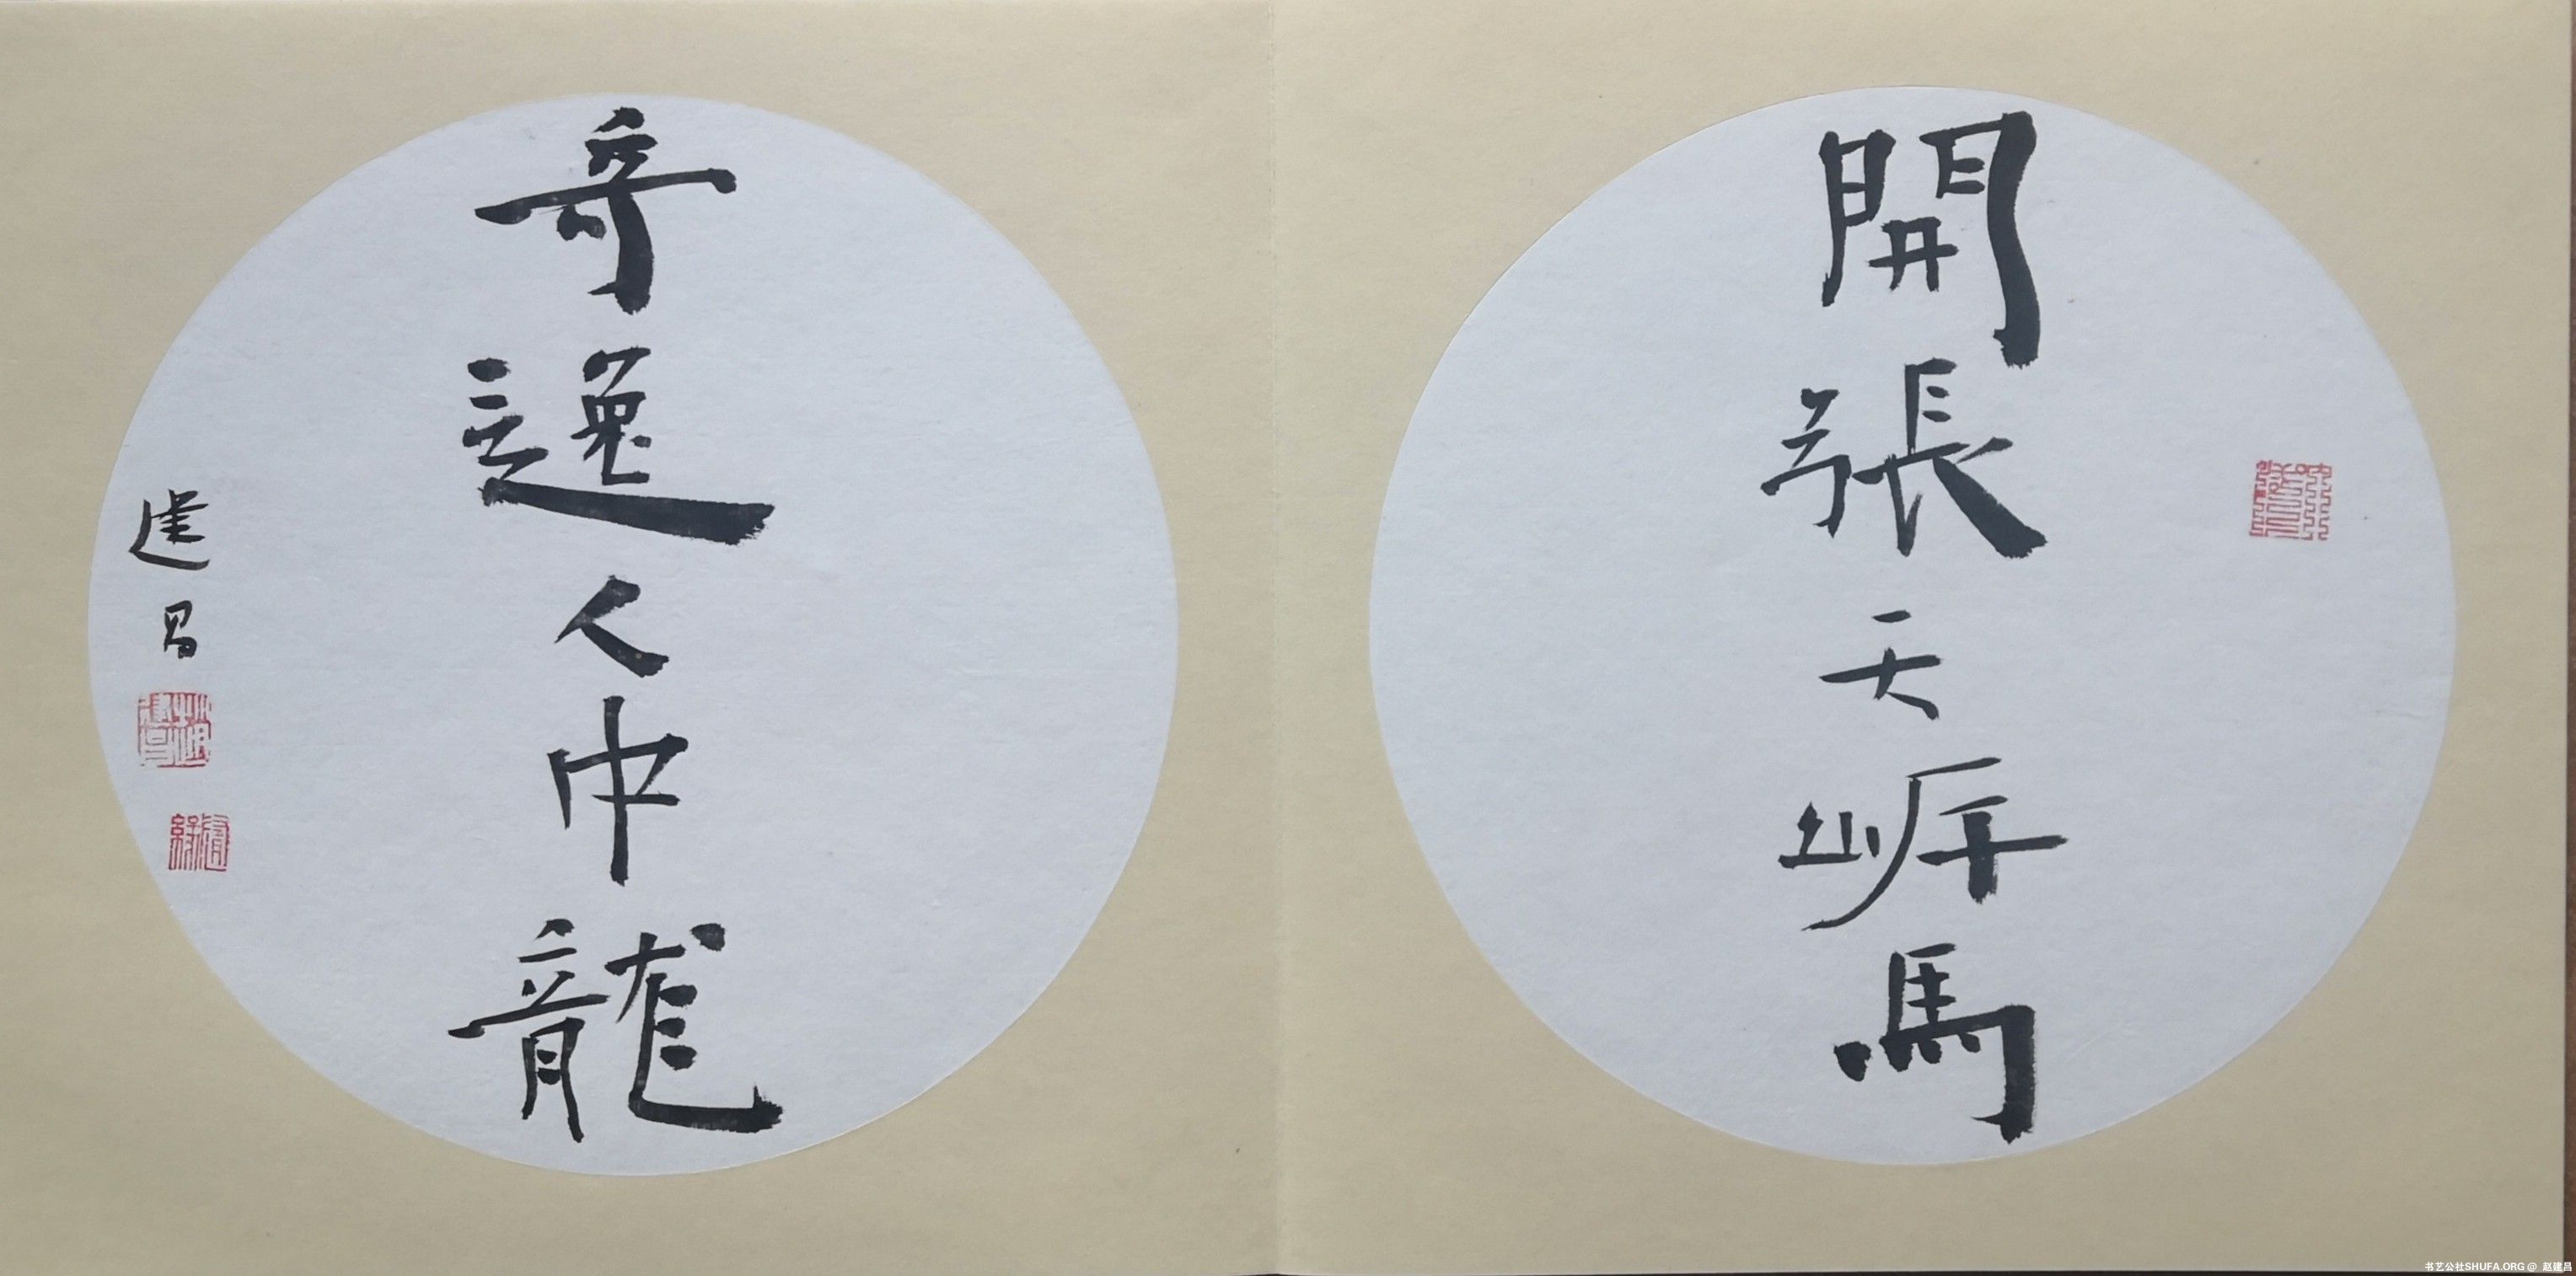 開張天岸馬
奇逸人中龍
建昌
书艺公社SHUFA.ORG @ 赵建昌